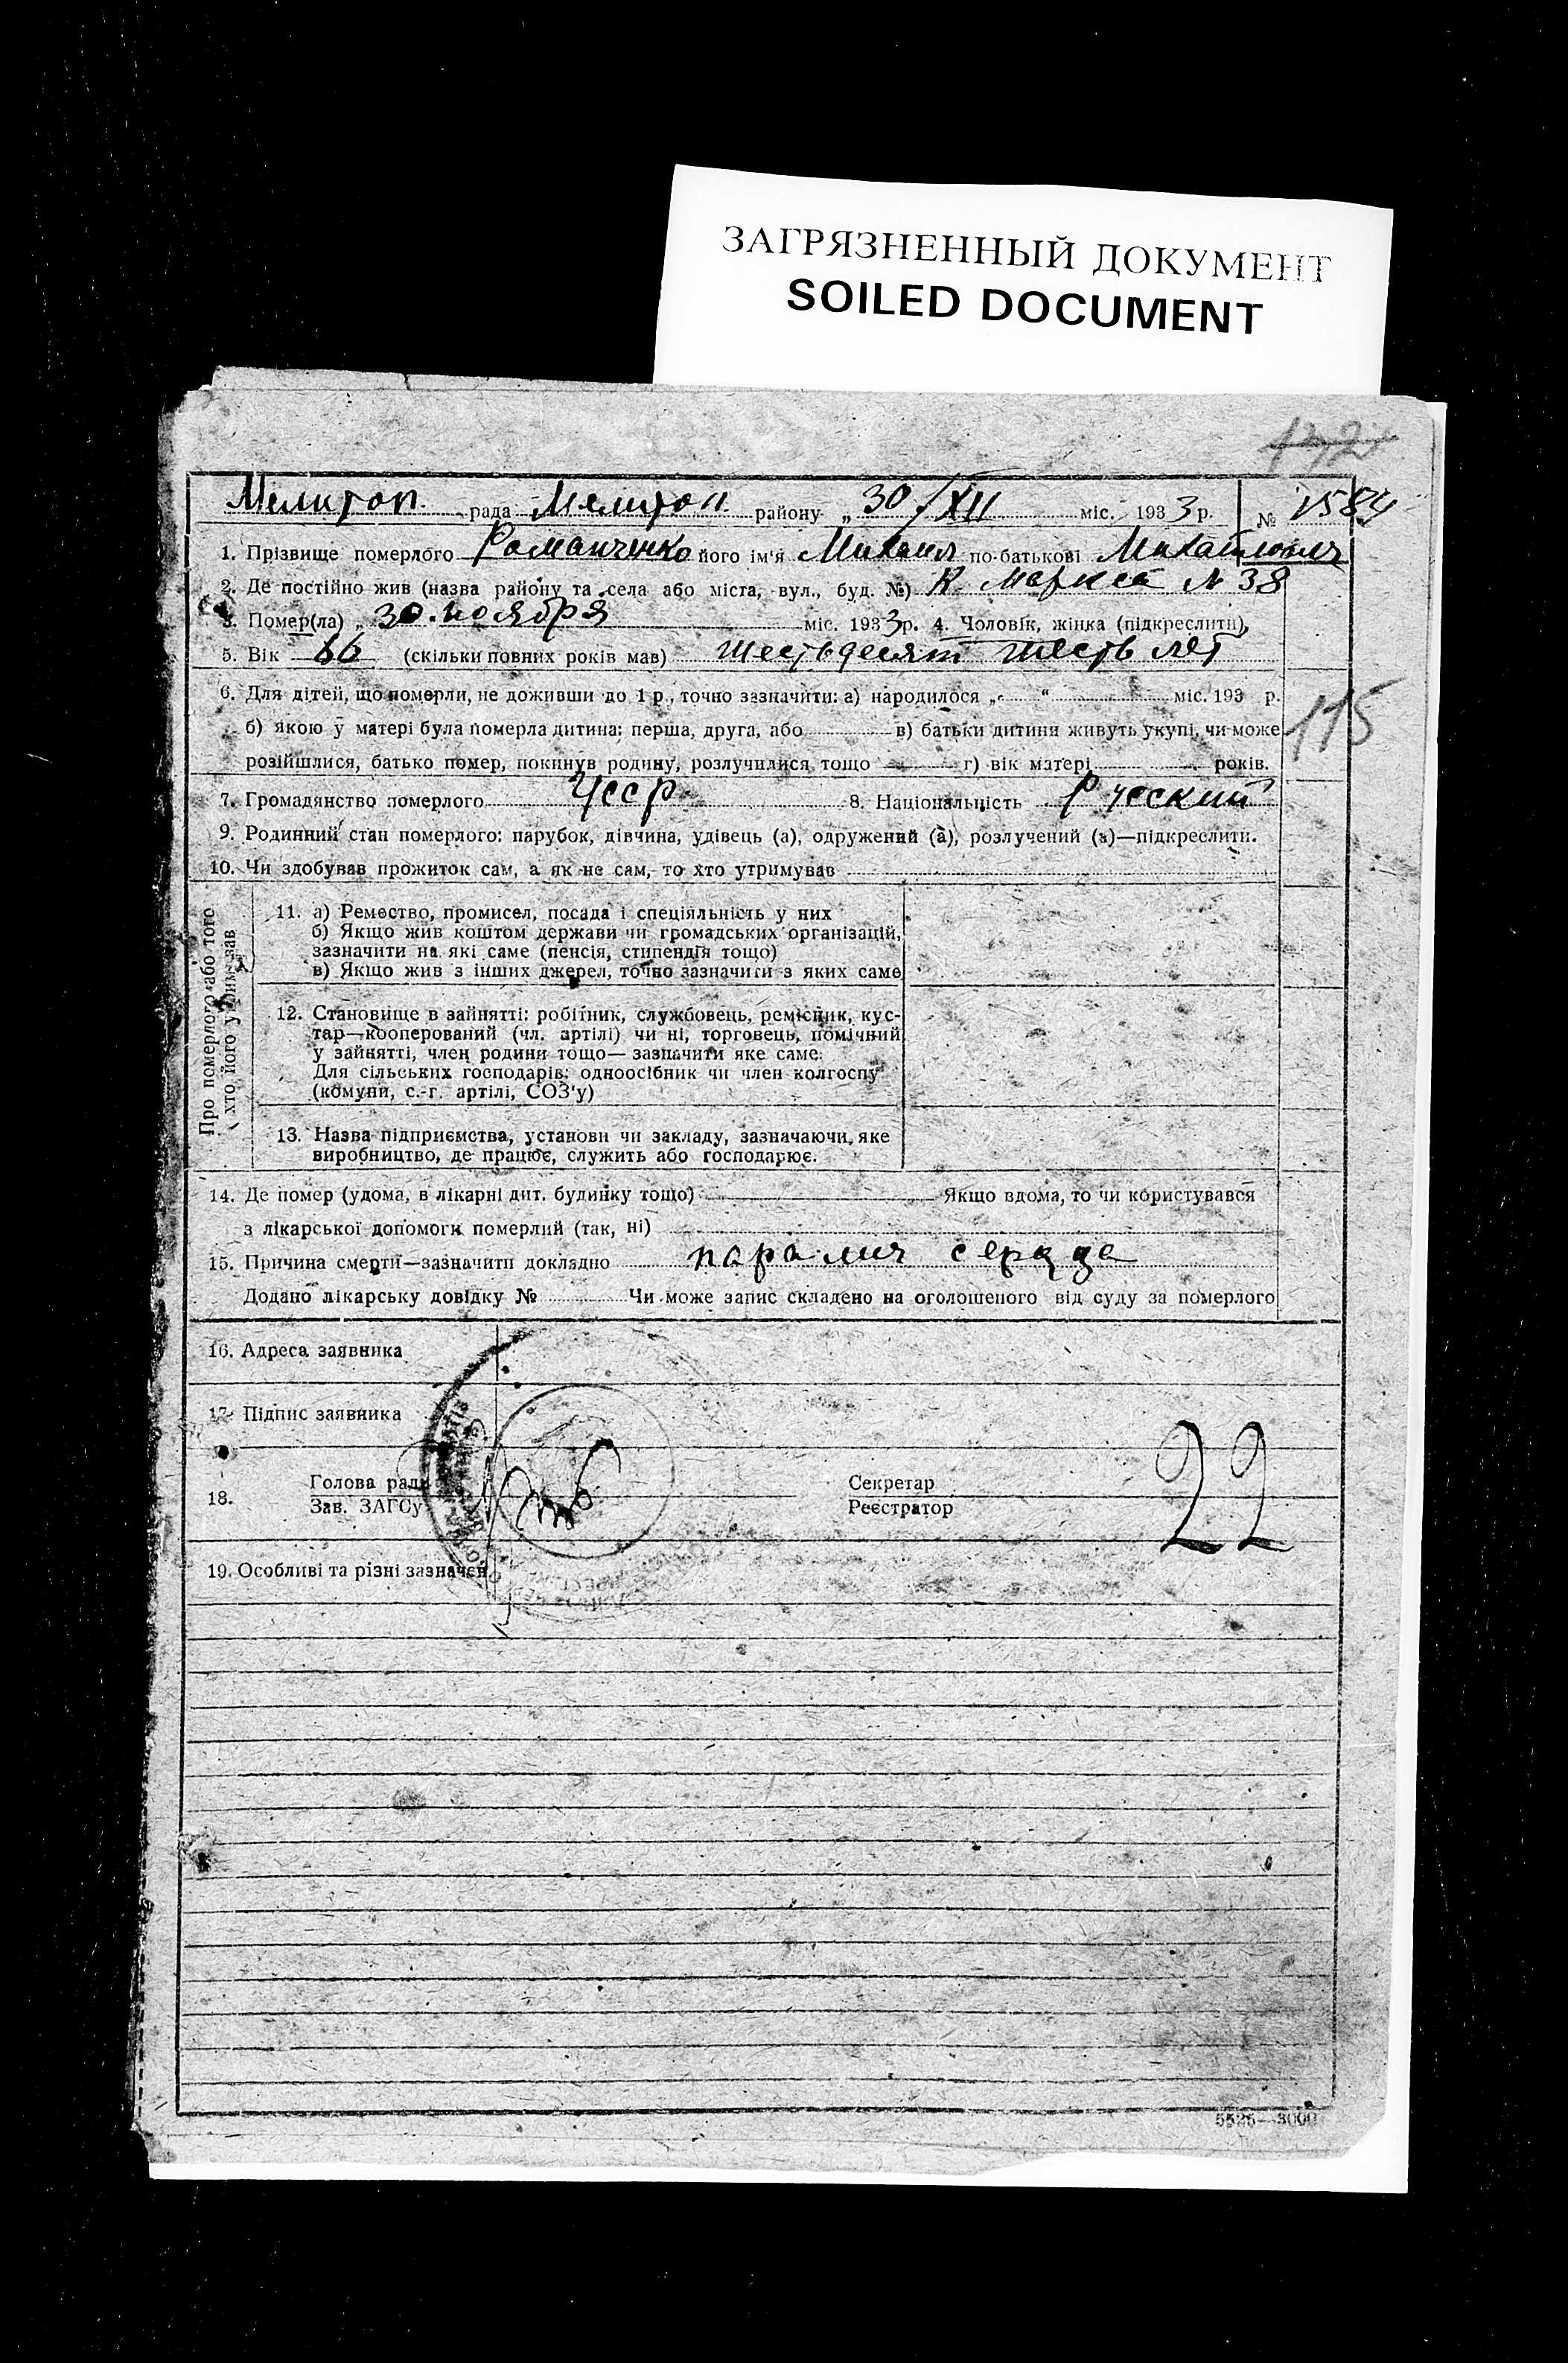 ЗАГРЯЗНЕННЫЙ ДОКУМЕНТ
SOILED DOCUMENT
Мелитоп. рада Мелитоп. району „30/XII міс. 1933 р. № 1584
1. Прізвище померлого Романченко його ім'я Михаил по-батькові Михайлович
2. Де постійно жив (назва району та села або міста, вул., буд. №) К. Маркса № 38
3. Помер(ла) „30. ноября міс. 1933 р. 4. Чоловік, жінка (підкреслити),
5. Вік 66 (скільки повних років мав) шестьдесят шесть лет
6. Для дітей, що померли, не доживши до 1 р., точно зазначити: а) народилося „ “ міс. 193 р.
115
б) якою у матері була померла дитина: перша, друга, або в) батьки дитини живуть укупі, чи може
розійшлися, батько помер, покинув родину, розлучилися тощо г) вік матері років.
7. Громадянство померлого Усср 8. Національність Русский
9. Родинний стан померлого: парубок, дівчина, удівець (а), одружений (а), розлучений (а)—підкреслити.
10. Чи здобував прожиток сам, а як не сам, то хто утримував
Про померлого або того
хто його утримував
11. а) Ремество, промисел, посада і спеціяльність у них
б) Якщо жив коштом держави чи громадських організацій,
зазначити на які саме (пенсія, стипендія тощо)
в) Якщо жив з інших джерел, точно зазначити з яких саме
12. Становище в зайнятті: робітник, службовець, ремісник, кус-
тар—кооперований (чл. артілі) чи ні, торговець, помічний
у зайнятті, член родини тощо—зазначити яке саме.
Для сільських господарів: одноосібник чи член колгоспу
(комуни, с.-г. артілі, СОЗ'у)
13. Назва підприємства, установи чи закладу, зазначаючи, яке
виробництво, де працює, служить або господарює.
14. Де помер (удома, в лікарні дит. будинку тощо) Якщо вдома, то чи користувався
з лікарської допомоги померлий (так, ні)
15. Причина смерти—зазначити докладно паралич сердца
Додано лікарську довідку № Чи може запис складено на оголошеного від суду за померлого
16. Адреса заявника
17. Підпис заявника
18. Голова ради Секретар
Зав. ЗАГСу Реєстратор
22
19. Особливі та різні зазначен.
5526—3000